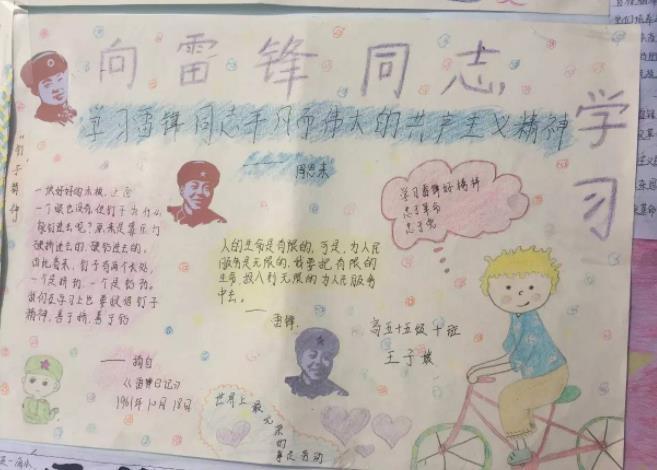 向雷锋同志学习
学习雷锋同志平凡而伟大的共产主义精神
——周恩来
"钉子精神"
一块好好的木板，上面
一个眼也没有，但钉子为什么
能钉进去呢？原来是靠压力
硬挤进去的，硬钻进去的。
由此看来，钉子有两个长处，
一个是挤劲，一个是钻劲。
我们在学习上也要提倡钉子
精神，善于挤，善于钻
——摘自
《雷锋日记》
1961年10月18日
人的生命是有限的，可是，为人民
服务是无限的，我要把有限的
生命，投入到无限的为人民服务
中去。
——雷锋
学习雷锋好榜样
忠于革命
忠于党
高五十五级十班
王子
世界上最
光荣的
事是劳动